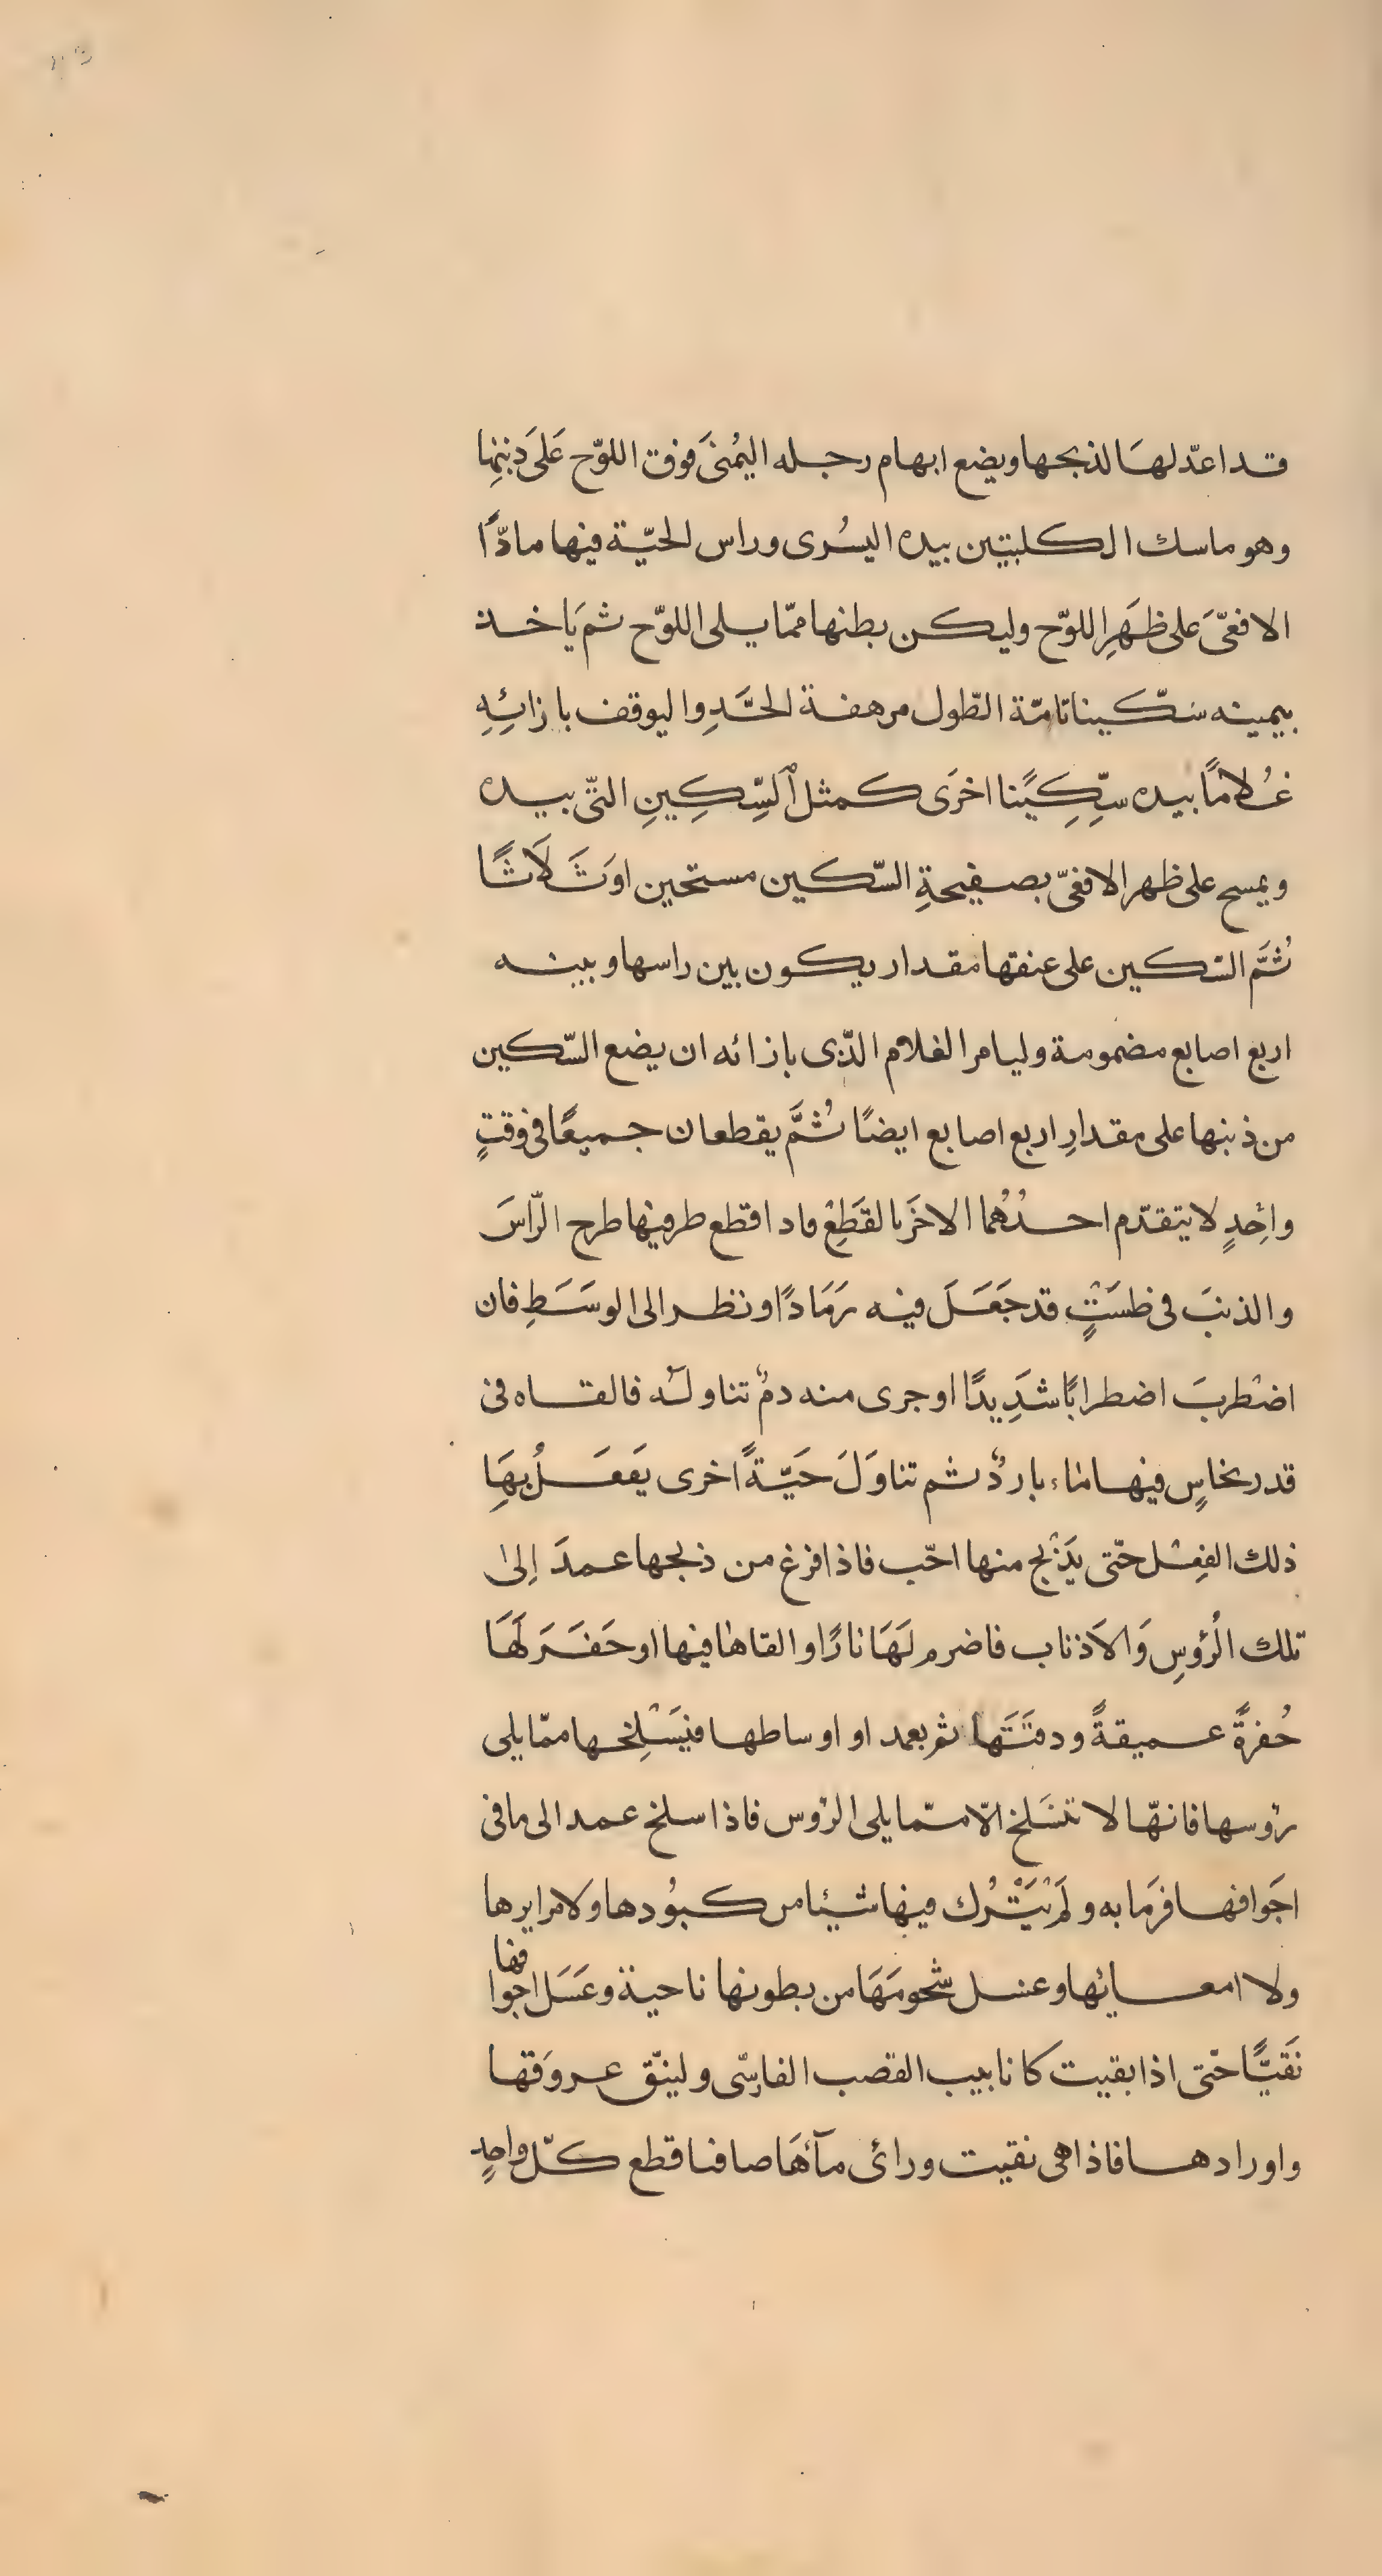 قد اعدّ لهَا لذبحها ويضع ابهام رجله اليُمنىَ فوق اللوّح عَلىَ ذنبها
وهو ماسك الكلبتين بيده اليسُرى وراس الحيّة فيها مادّاً
الافعىّ على ظَهَرِ اللوّح وليكن بطنها ممّا يلى اللوّح ثم يَاخذ
بيمينه سَكّينا تامّة الطّول مرهفة الحَّدِ واليوقف بازائِهِ
غُلامًا بيده سِّكِيًنا اخرَى كمثل السِّكِينِ التّى بيده
ويمسح على ظهر الافعىّ بصفيحةِ السّكين مستحين اوَثَلَاثًا
ثُمَّ السّكين على عنقها مقدار يكون بين راسها وبينه
اربع اصابع مضمومة وليامر الغلام الذّى بازائه ان يضع السّكين
من ذنبها على مقدارِ اربع اصابع ايضًا ثُمَّ يقطعان جميعًا فى وقتٍ
واحِدٍ لا يتقدّم احدُهُما الاخَر بالقَطِعْ فاداقطع طرفيها طرح الرّاسَ
والذنبَ فى طسَتٍْ قد جَعَلَ فيه رَمَادًا ونظر الى الوسَطِ فان
اضْطربَ اضطرابًا شدَِيدًا اوجرى منه دمٌ تناوله فالقاه فى
قدر نحاسٍ فيها ماء باردٌ ثم تناوَلَ حَيّةً اخرى يَفعَلُ بهَِا
ذلك الفِعْل حتّى يَذْبح منها احّب فاذا فرغ من ذبحها عمدَ اِلىٰ
تلك الرُؤسِ وَالاَذناب فاضرم لهََا نارًا والقاها فيها اوحَفَرَ لهََا
حُفرةً عميقةً ودفَنَتَها ثم يعمد او اوساطها فيَسَْلِخها ممّا يلى
رؤسها فانهّا لا تنسَلخ الّا ممّا يلى الرؤس فاذا سلخ عمد الى مافى
اجَوافها فرَمَا به ولَمْ يَتْرُك فيها شيئا من كبوُدها ولا مرايرها
ولا امعائها وعنسل شحومهََا من بطونها ناحية وعَسَل اجوافها
نَقيًّا حتّى اذا بقيت كانابيب القصب الفارسّى ولينّق عروَقها
واورادها فاذا هى نقيت ورائ مآئهَا صافنا قطع كلّ واحدٍ